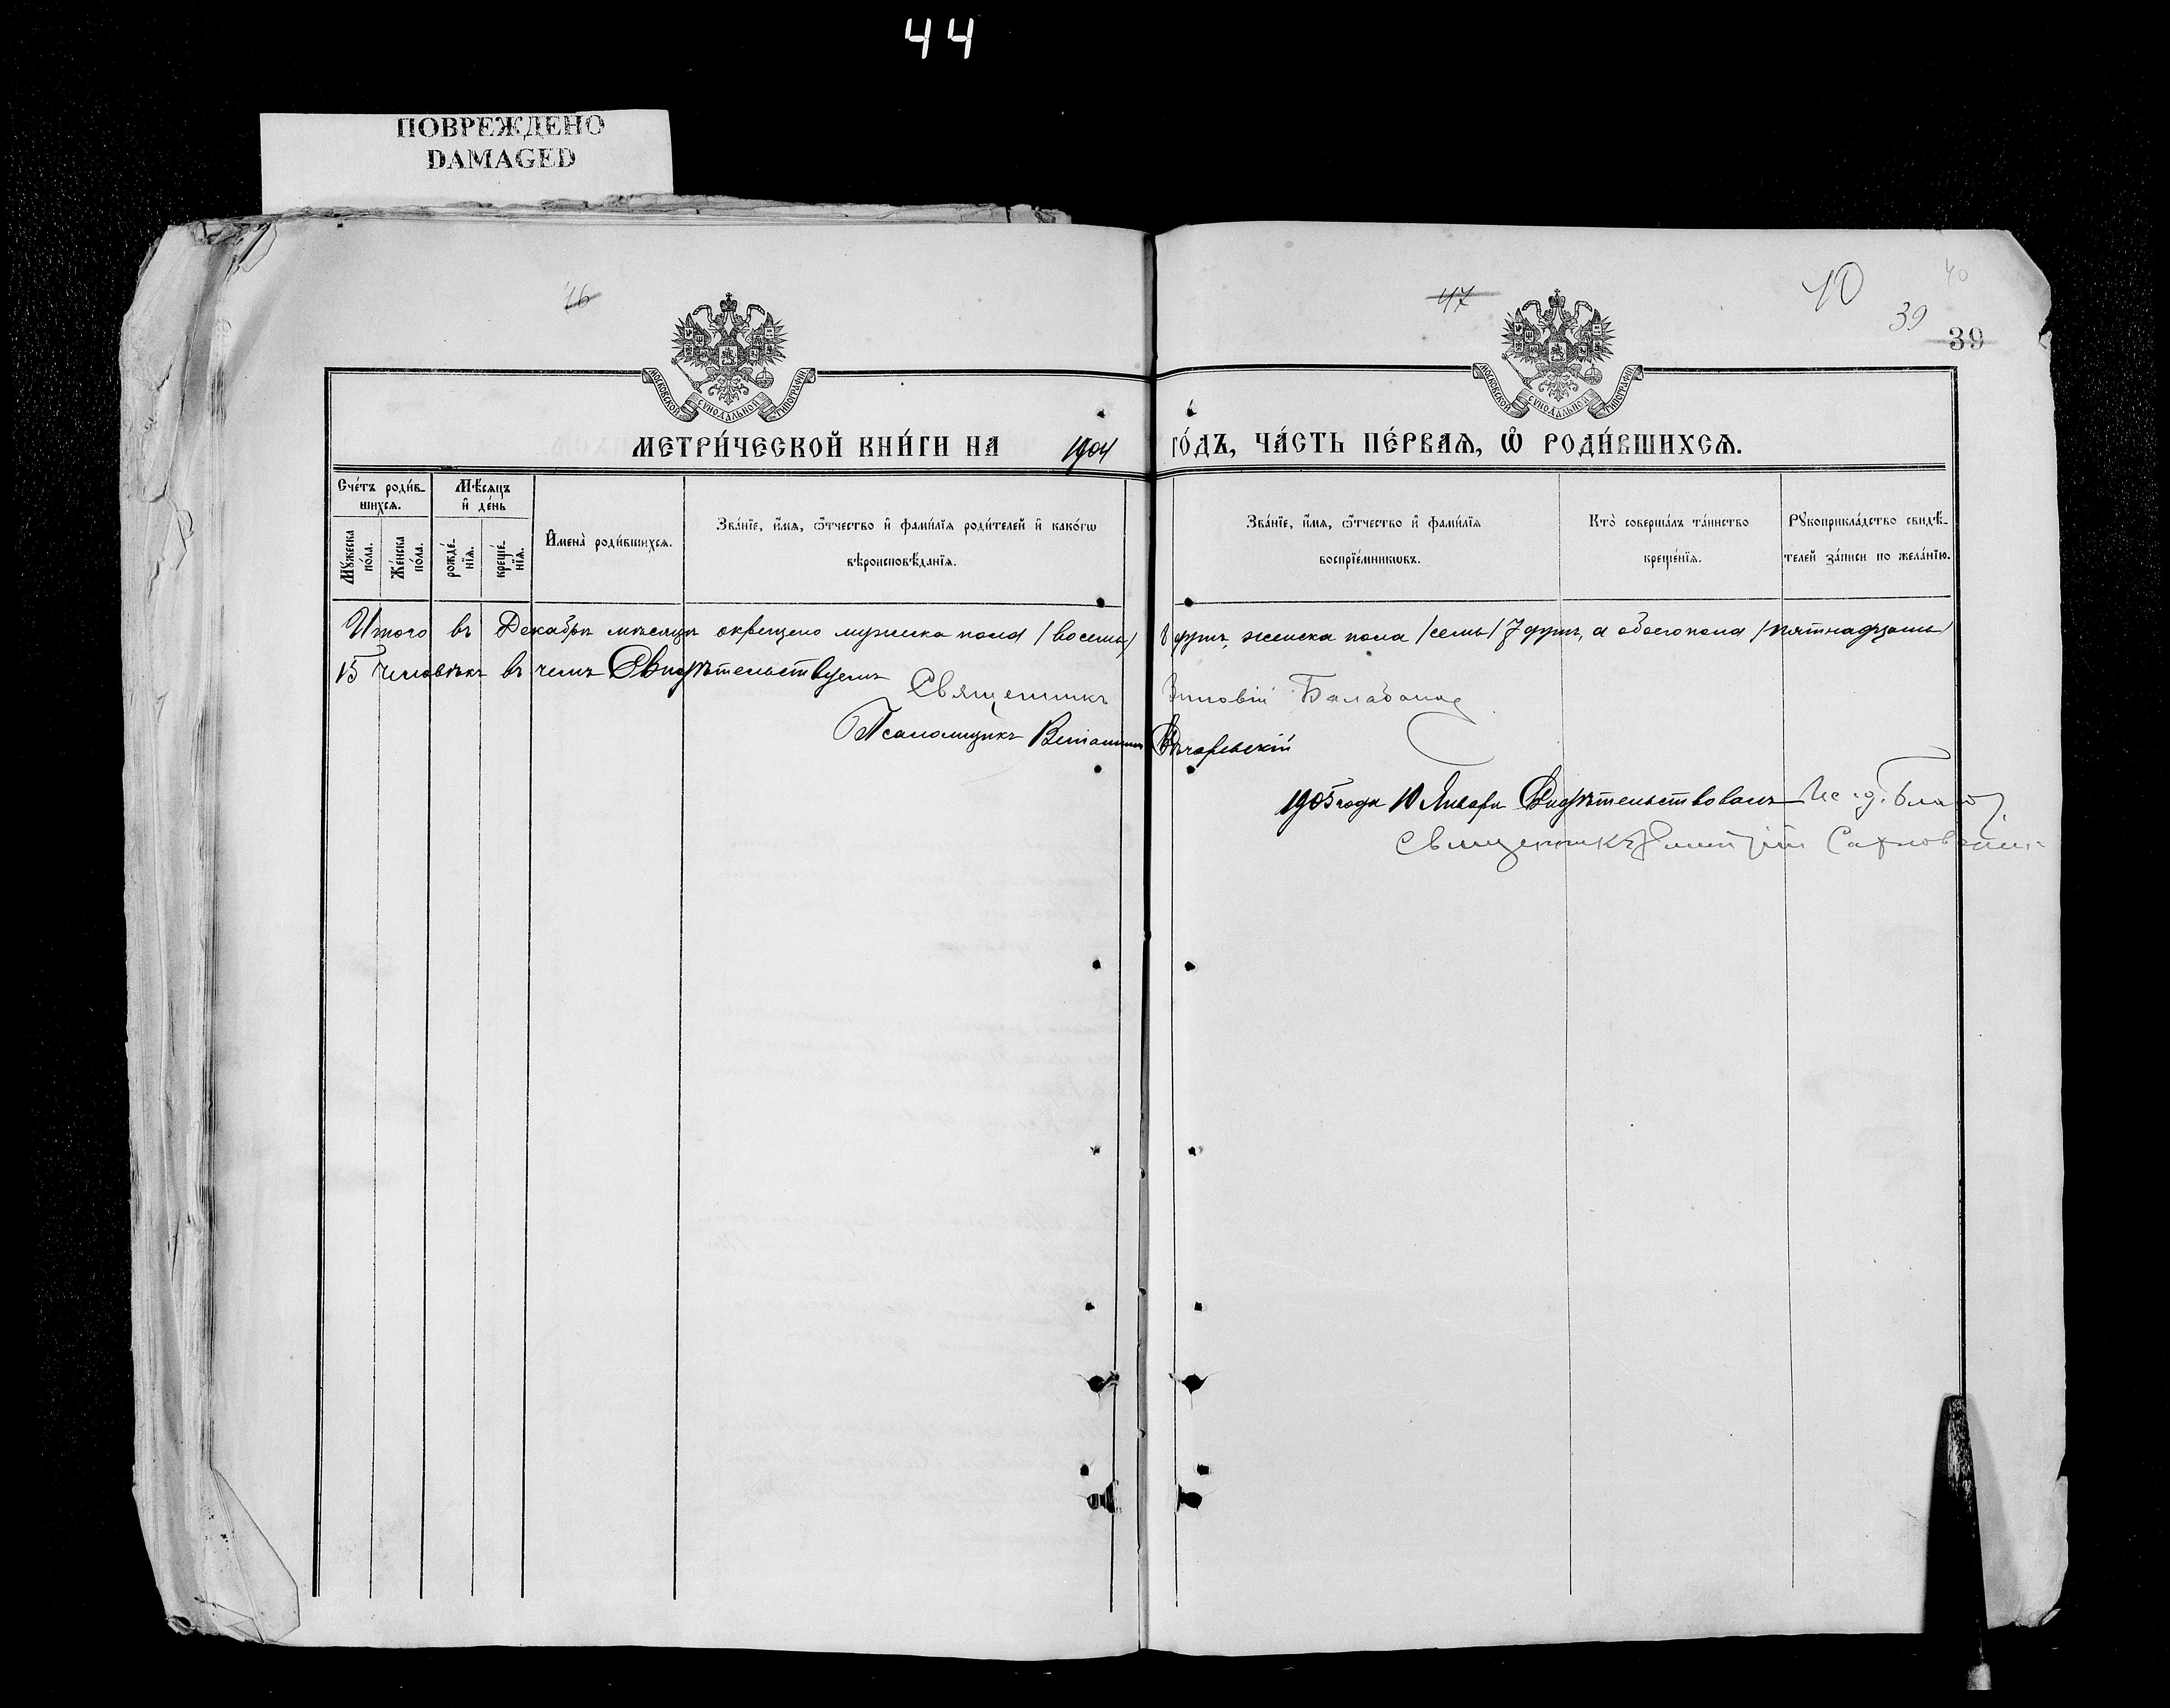 44
ПОВРЕЖДЕНО
DAMAGED
46
47
10
40
39
39
МОСКОВСКОЙ СѴНОДАЛЬНОЙ ТИПОГРАФІИ
МОСКОВСКОЙ СѴНОДАЛЬНОЙ ТИПОГРАФІИ
МЕТРИ́ЧЕСКОЙ КНИ́ГИ НА 1904 ГО́ДЪ, ЧА́СТЬ ПЕ́РВАѦ, Ѡ҆ РОДИ́ВШИХСѦ.
Сче́тъ роди́в-
шихсѧ.
Мꙋ́жеска по́ла.
Же́нска по́ла.
Мѣ́сяцъ
и҆ де́нь
рожде́-
нїѧ.
креще́-
нїѧ.
И҆мена̀ роди́вшихсѧ.
Зва́нїе, и҆́мѧ, ѻ҆́тчество и҆ фами́лїѧ роди́телей и҆ како́гѡ
вѣроисповѣ́данїѧ.
Зва́нїе, и҆́мѧ, ѻ҆́тчество и҆ фами́лїѧ
воспрїе́мникѡвъ.
Кто̀ соверша́лъ та́инство
креще́нїѧ.
Рꙋкоприкла́дство свидѣ́-
телей за́писи по жела́нїю.
Итого въ Декабрѣ мѣсяцѣ окрещено мужеска пола /восемь/ 8 душъ, женска пола /семь/ 7 душъ, а обоего пола /пятнадцать/
15 человѣкъ въ чемъ Свидѣтельствуемъ
Священникъ Зиновій Балабанов
Псаломщикъ Веніаминъ
1905 года 10 Января Свидѣтельствовалъ Ис. д. Благ.
Священникъ Димитрій Сахновскій